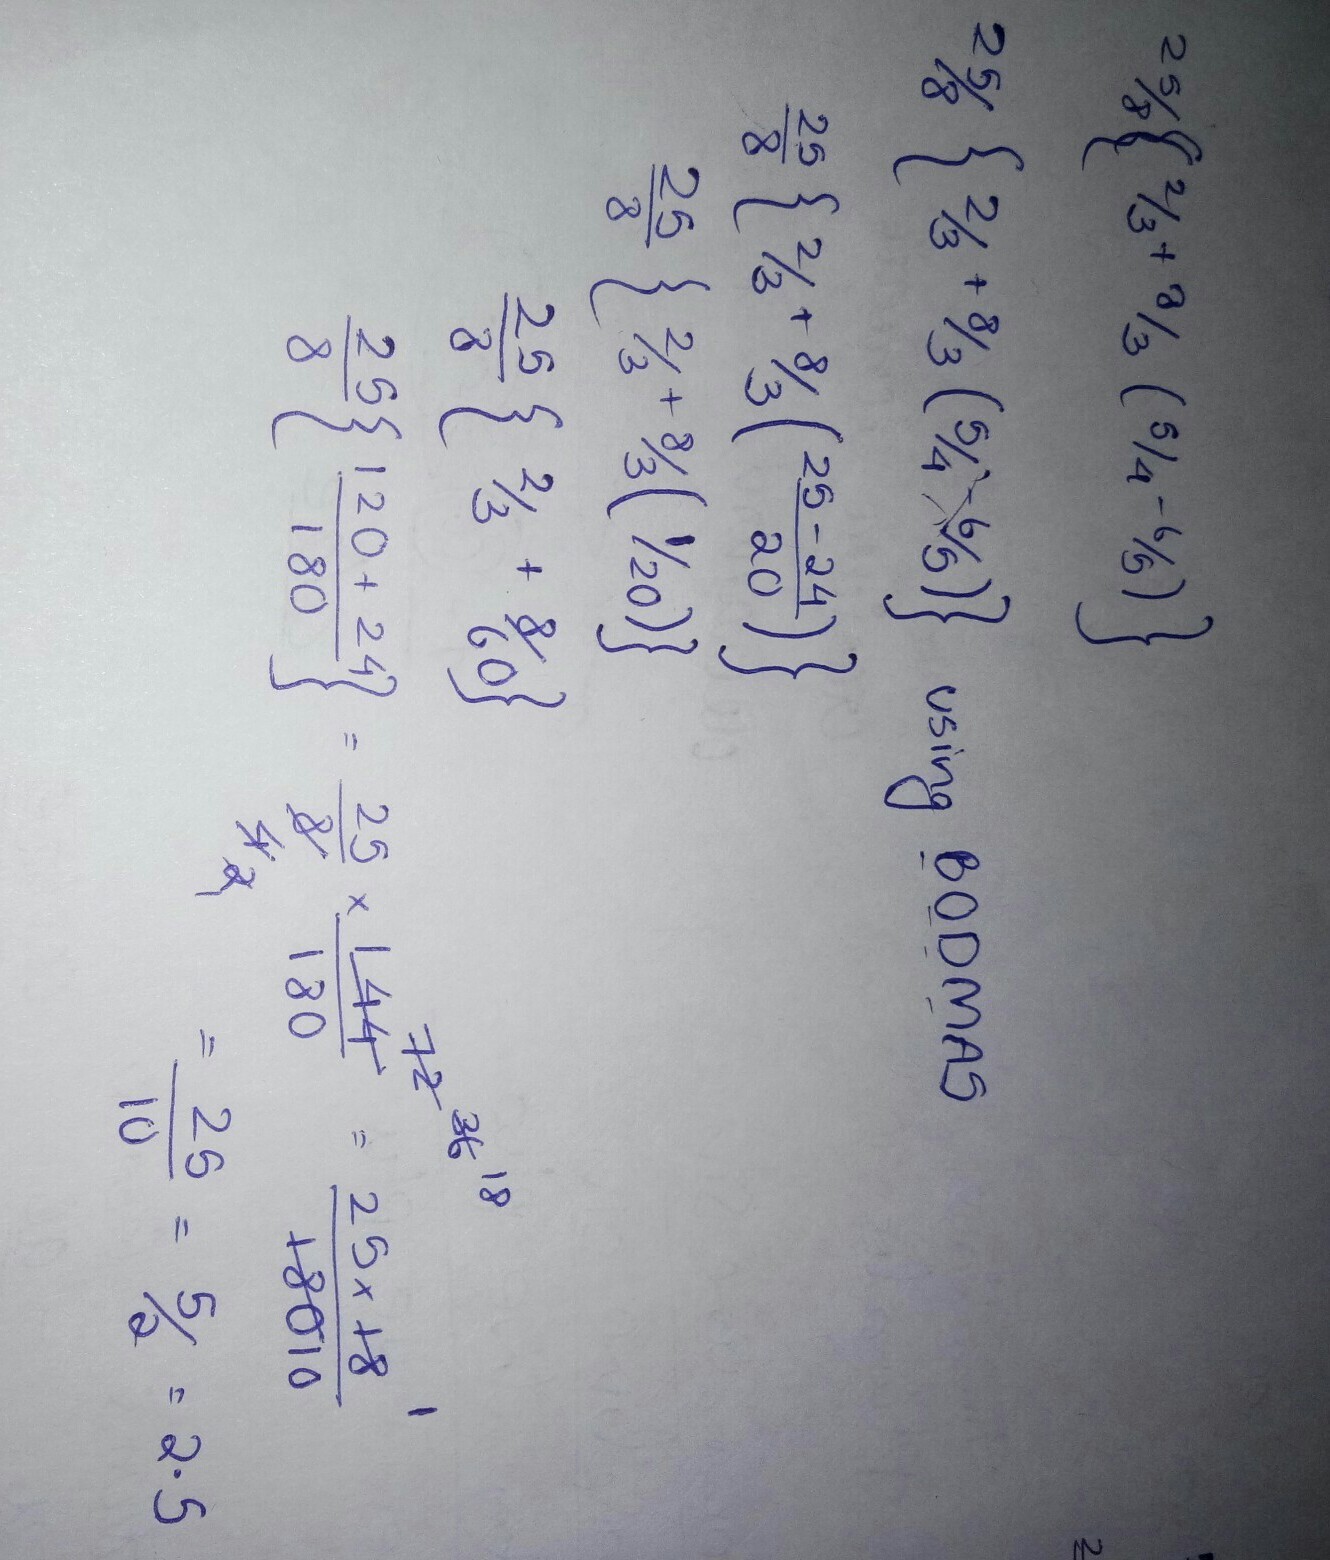 25/8 { 2/3 + 8/3 ( 5/4 - 6/5 ) }
25/8 { 2/3 + 8/3 ( 5/4 - 6/5 ) } using BODMAS
25/8 { 2/3 + 8/3 ( 25-24/20 ) }
25/8 { 2/3 + 8/3 ( 1/20 ) }
25/8 { 2/3 + 8/60 }
25/8 { 120+24/180 } = 25/8 × 144/180 = 25×18/180 10 1
4 2 1
72 36 18
= 25/10 = 5/2 = 2.5
2